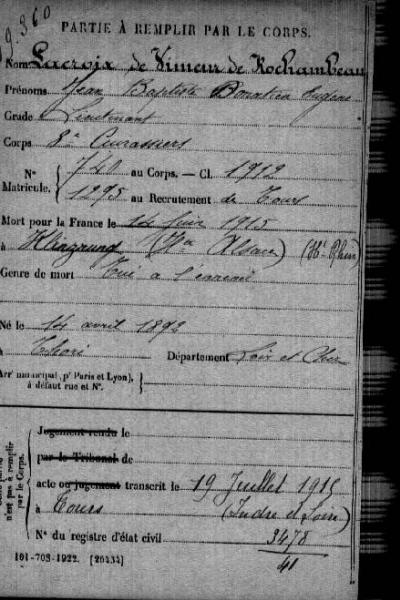 9.360
PARTIE À REMPLIR PAR LE CORPS.
Nom Lacroix de Vimeur de Rochambeau
Prénoms Jean Baptiste Donatien Eugène
Grade Lieutenant
Corps 8e Cuirassiers
N° Matricule. { 740 au Corps. — Cl. 1912
1295 au Recrutement de Tours
Mort pour la France le 14 Juin 1915
à (Hte Alsace) (Ht Rhin)
Genre de mort Tué à l'ennemi
Né le 14 avril 1892
à Thoré Département Loir et Cher
Arrt municipal (pr Paris et Lyon), à défaut rue et N°. }
n'est pas à remplir par le Corps.
Jugement rendu le
par le Tribunal de
acte ou jugement transcrit le 19 Juillet 1915
à Tours (Indre et Loire)
N° du registre d'état civil 3478
41
101-703-1922. [26434]